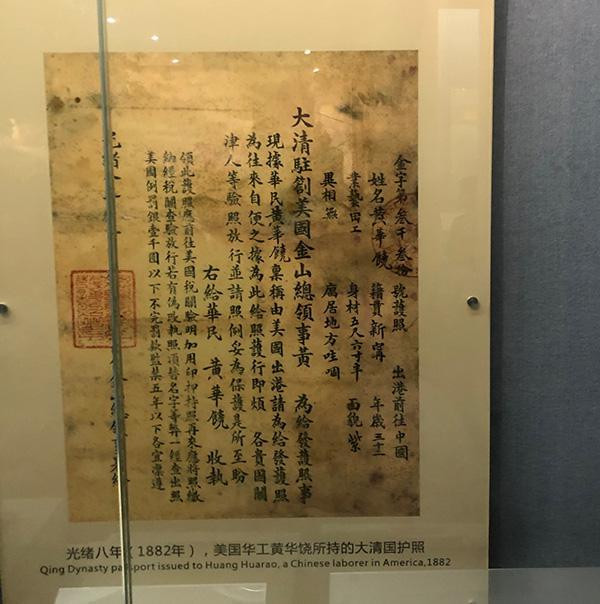 金字第叁千叁拾 號護照 出港前往中國
姓名黃華饒 籍貫新甯 年歲三十一
業藝田工 身材五尺六寸半 面貌紫
異相無 寓居地方哇嗰
大清駐劄美國金山總領事黃 為給發護照事
現據華民黃華饒稟稱由美國出港請為給發護照
為往來自便之據為此給照護行即煩 各貴國關
津人等驗照放行並請照例妥為保護是所至盼
右給華民 黃華饒 收執
領此護照應前往美國稅關驗明加用印押持照再來應將照繳
納經稅關查驗放行若有偽改執照頂替名字等弊一經查出照
美國例罰銀壹千圓以下不完罰款監禁五年以下各宜凜遵
光緒
光绪八年（1882年），美国华工黄华饶所持的大清国护照
Qing Dynasty passport issued to Huang Huarao, a Chinese laborer in America,1882